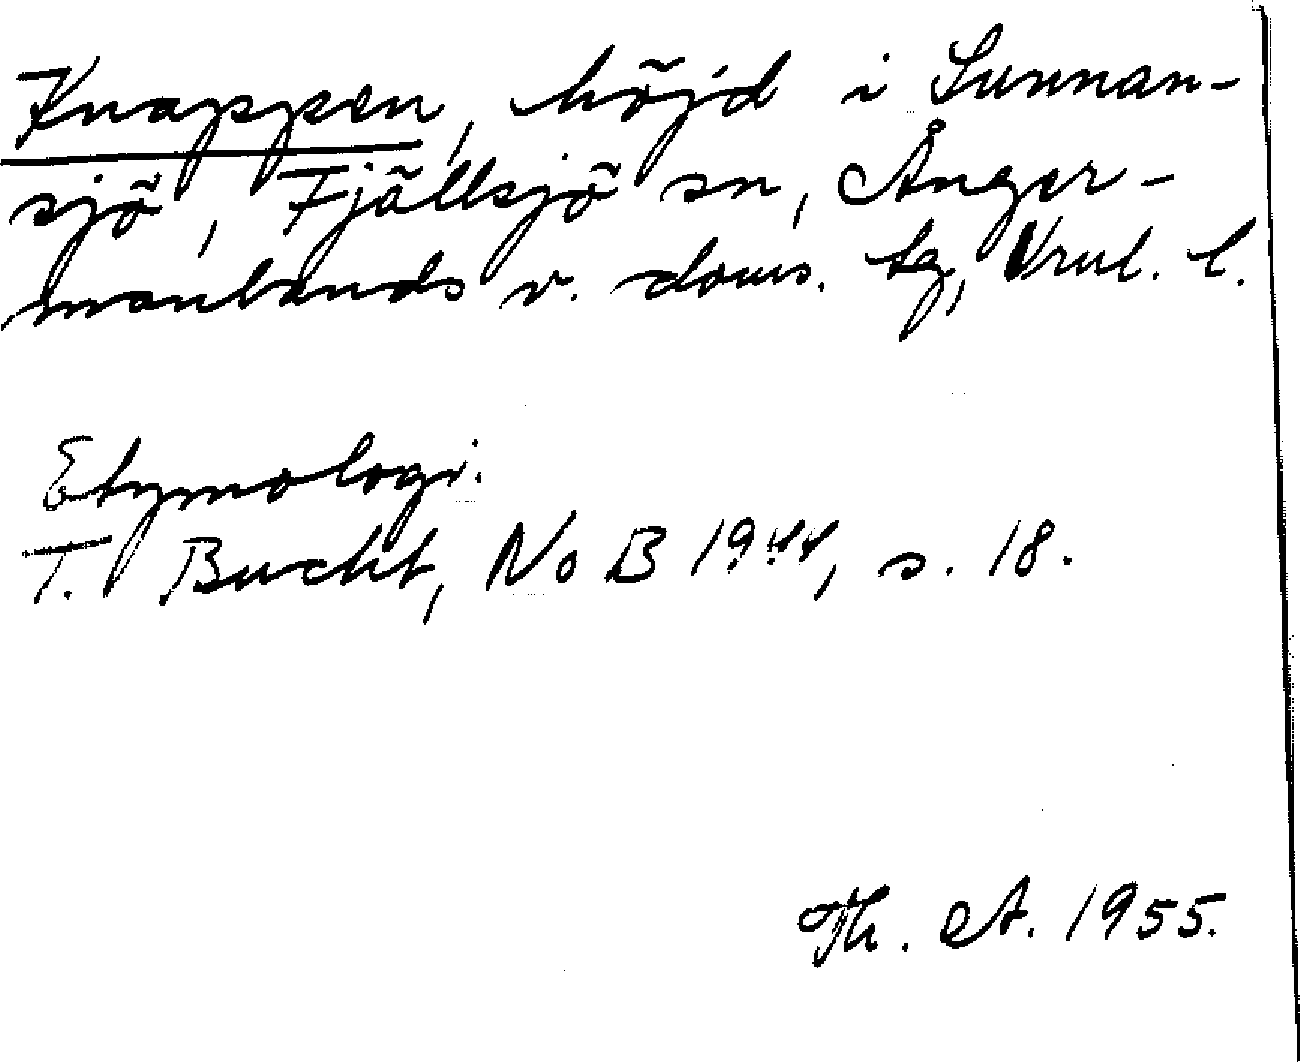 Knappen, höjd i Sunnan-
sjö, Fjällsjö sn, Ånger-
manlands v. doms. tg, Vrnl. l.
Etymologi.
T. Bucht, NoB 1944, s. 18.
Th. A. 1955.